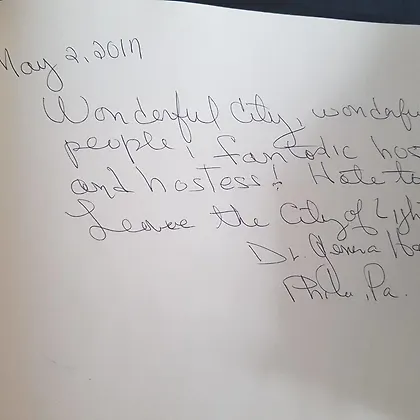 May 2, 2017
Wonderful City, wonderfu
people! fantastic hos
and hostess! Hate to
Leave the City of Ligh
Dr.
Phila, Pa.